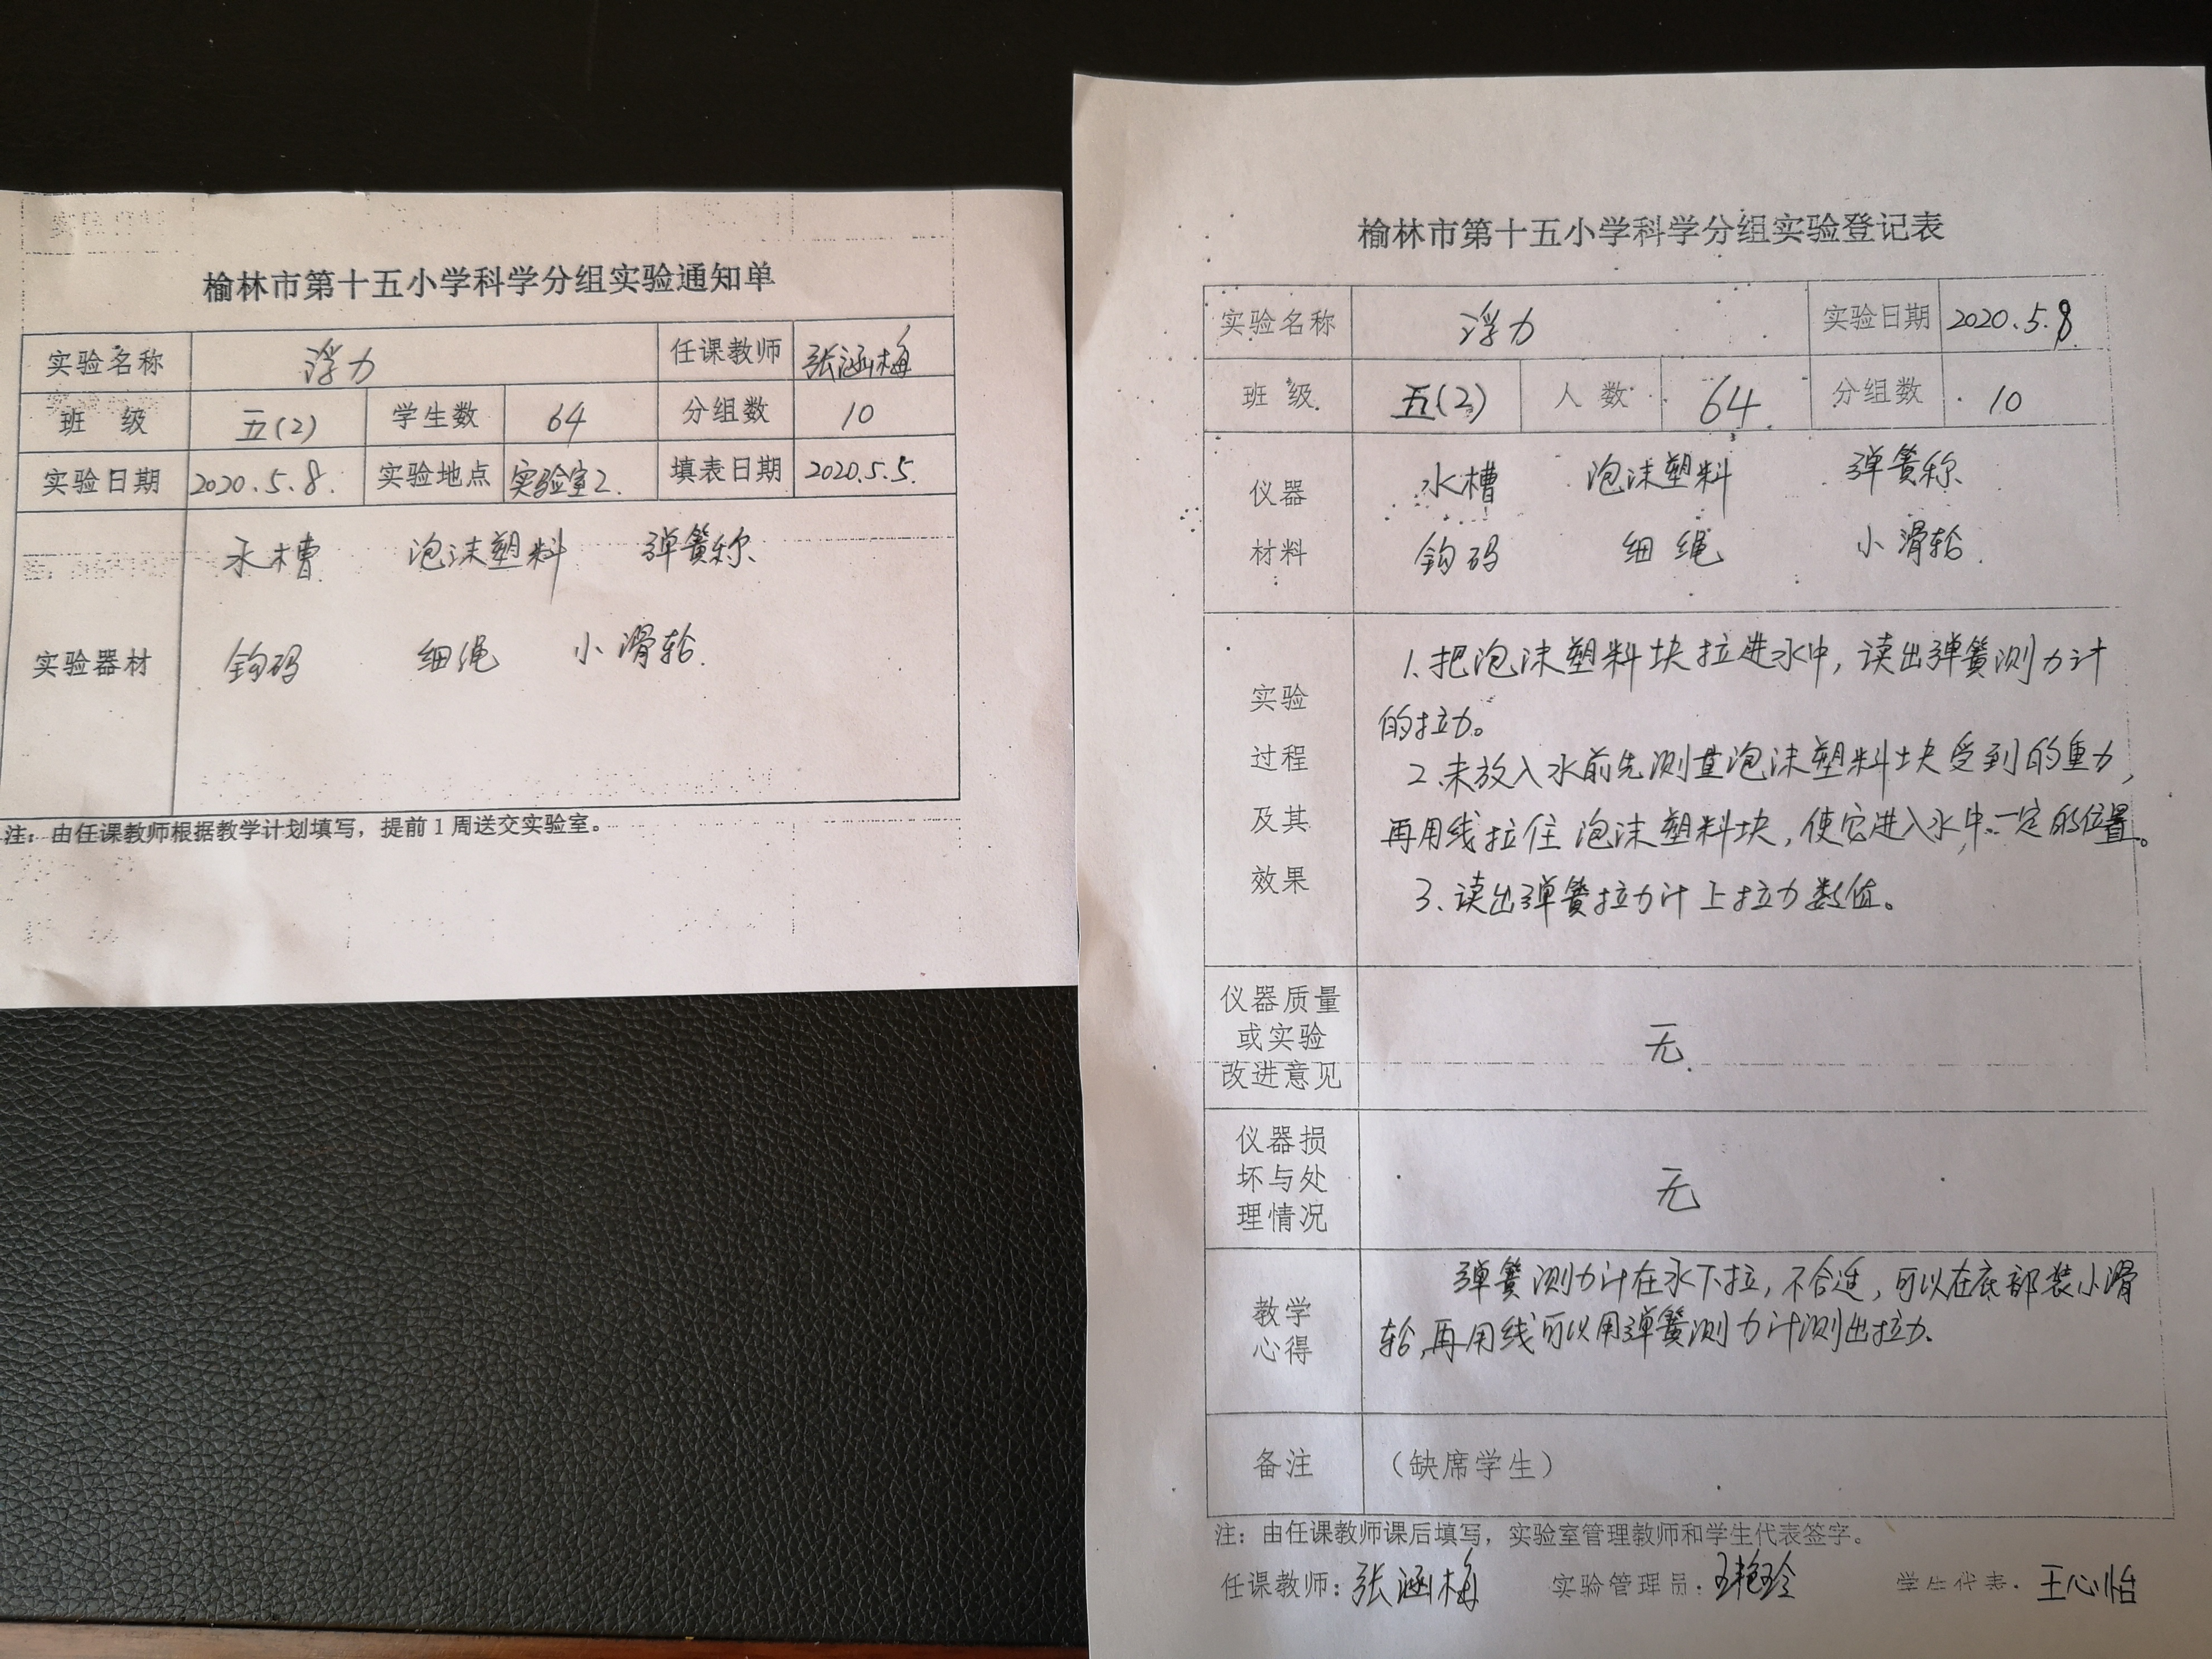 榆林市第十五小学科学分组实验通知单
实验名称 浮力 任课教师 张涵梅
班 级 五(2) 学生数 64 分组数 10
实验日期 2020.5.8. 实验地点 实验室2. 填表日期 2020.5.5.
水槽 泡沫塑料 弹簧称
实验器材 钩码 细绳 小滑轮
注：由任课教师根据教学计划填写，提前1周送交实验室。
榆林市第十五小学科学分组实验登记表
实验名称 浮力 实验日期 2020.5.8
班 级 五(2) 人 数 64 分组数 10
仪器 水槽 泡沫塑料 弹簧称
材料 钩码 细绳 小滑轮
实验
过程
及其
效果
1.把泡沫塑料块拉进水中，读出弹簧测力计
的拉力。
2.未放入水前先测量泡沫塑料块受到的重力，
再用线拉住泡沫塑料块，使它进入水中一定的位置。
3、读出弹簧拉力计上拉力数值。
仪器质量
或实验
改进意见
无
仪器损
坏与处
理情况
无
教学
心得
弹簧测力计在水下拉，不合适，可以在底部装小滑
轮，再用线可以用弹簧测力计测出拉力.
备注 （缺席学生）
注：由任课教师课后填写，实验室管理教师和学生代表签字。
任课教师：张涵梅 实验管理员：王艳玲 学生代表：王心怡